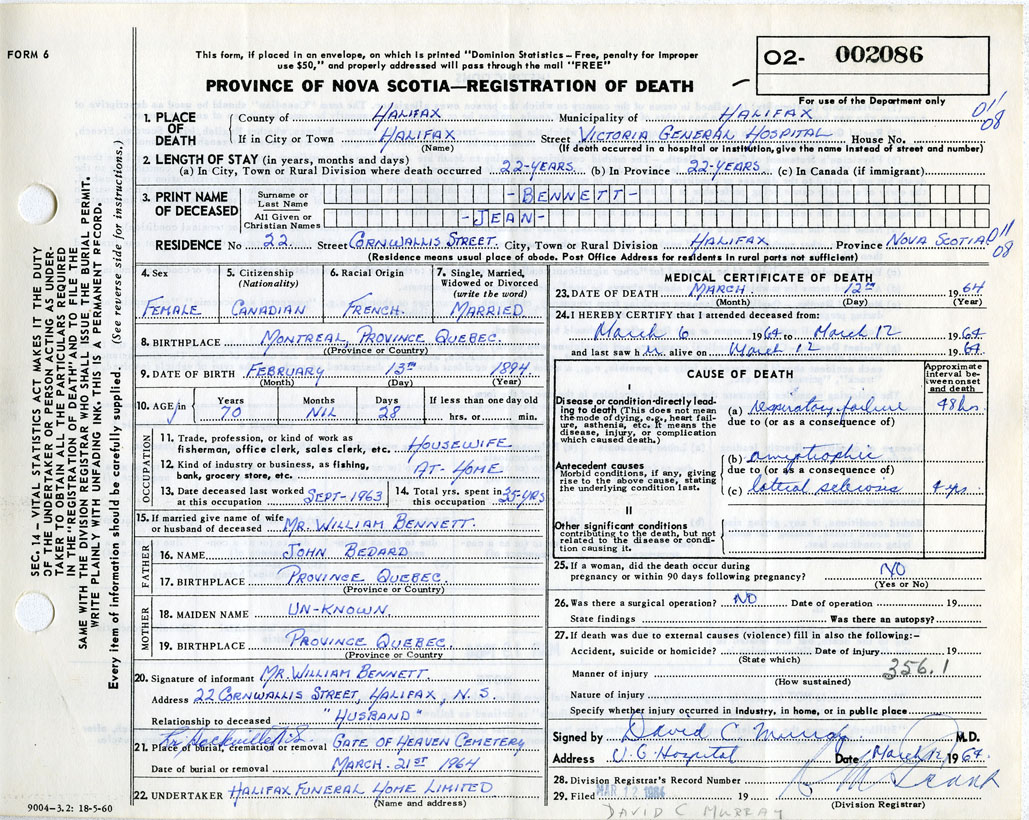 FORM 6
This form, if placed in an envelope, on which is printed "Dominion Statistics—Free, penalty for improper
use $50," and properly addressed will pass through the mail "FREE"
O2- 002086
PROVINCE OF NOVA SCOTIA—REGISTRATION OF DEATH
For use of the Department only
1. PLACE OF DEATH
County of HALIFAX Municipality of HALIFAX 011/08
If in City or Town HALIFAX Street VICTORIA GENERAL HOSPITAL House No.
(Name) (If death occurred in a hospital or institution, give the name instead of street and number)
2. LENGTH OF STAY (in years, months and days)
(a) In City, Town or Rural Division where death occurred 22-YEARS (b) In Province 22-YEARS (c) In Canada (if immigrant)
3. PRINT NAME OF DECEASED
Surname or Last Name -BENNETT-
All Given or Christian Names -JEAN-
RESIDENCE No 22 Street CORNWALLIS STREET City, Town or Rural Division HALIFAX Province NOVA SCOTIA 011/08
(Residence means usual place of abode. Post Office Address for residents in rural parts not sufficient)
4. Sex FEMALE
5. Citizenship (Nationality) CANADIAN
6. Racial Origin FRENCH.
7. Single, Married, Widowed or Divorced (write the word) MARRIED
8. BIRTHPLACE MONTREAL, PROVINCE QUEBEC.
(Province or Country)
9. DATE OF BIRTH FEBRUARY 13th 1894
(Month) (Day) (Year)
10. AGE in Years 70 Months NIL Days 28 If less than one day old hrs. or min.
OCCUPATION
11. Trade, profession, or kind of work as
fisherman, office clerk, sales clerk, etc. HOUSEWIFE.
12. Kind of industry or business, as fishing,
bank, grocery store, etc. AT-HOME
13. Date deceased last worked at this occupation SEPT-1963
14. Total yrs. spent in this occupation 35-YRS
15. If married give name of wife or husband of deceased MR. WILLIAM BENNETT.
FATHER
16. NAME JOHN BEDARD
17. BIRTHPLACE PROVINCE QUEBEC.
(Province or Country)
MOTHER
18. MAIDEN NAME UN-KNOWN.
19. BIRTHPLACE PROVINCE QUEBEC.
(Province or Country
20. Signature of informant MR. WILLIAM BENNETT.
Address 22 CORNWALLIS STREET, HALIFAX, N.S.
Relationship to deceased "HUSBAND"
21. Place of burial, cremation or removal GATE OF HEAVEN CEMETERY
Date of burial or removal MARCH. 21ST 1964
22. UNDERTAKER HALIFAX FUNERAL HOME LIMITED
(Name and address)
MEDICAL CERTIFICATE OF DEATH
23. DATE OF DEATH MARCH 12th 1964
(Month) (Day) (Year)
24. I HEREBY CERTIFY that I attended deceased from:
March 6 1964 to March 12 1964
and last saw h alive on March 12 1964
CAUSE OF DEATH
Approximate interval between onset and death
I
Disease or condition directly leading to death (This does not mean the mode of dying, e.g., heart failure, asthenia, etc. It means the disease, injury, or complication which caused death.)
(a) respiratory failure 48 hrs.
due to (or as a consequence of)
Antecedent causes
Morbid conditions, if any, giving rise to the above cause, stating the underlying condition last.
(b) amyotrophic
due to (or as a consequence of)
(c) lateral sclerosis 4 yrs.
II
Other significant conditions
contributing to the death, but not related to the disease or condition causing it.
25. If a woman, did the death occur during
pregnancy or within 90 days following pregnancy? NO
(Yes or No)
26. Was there a surgical operation? NO Date of operation 19
State findings Was there an autopsy?
27. If death was due to external causes (violence) fill in also the following:—
Accident, suicide or homicide? Date of injury 19
(State which)
Manner of injury 356.1
(How sustained)
Nature of injury
Specify whether injury occurred in industry, in home, or in public place
Signed by David C Murray M.D.
Address V.G Hospital Date March 12 1964
28. Division Registrar's Record Number
29. Filed MAR 12 1964 19
(Division Registrar)
DAVID C. MURRAY
9004-3.2: 18-5-60
SEC. 14 — VITAL STATISTICS ACT MAKES IT THE DUTY
OF THE UNDERTAKER OR PERSON ACTING AS UNDER-
TAKER TO OBTAIN ALL THE PARTICULARS REQUIRED
IN THE "REGISTRATION OF DEATH" AND TO FILE THE
SAME WITH THE DIVISION REGISTRAR WHO SHALL ISSUE THE BURIAL PERMIT.
WRITE PLAINLY WITH UNFADING INK. THIS IS A PERMANENT RECORD.
Every item of information should be carefully supplied. (See reverse side for instructions.)